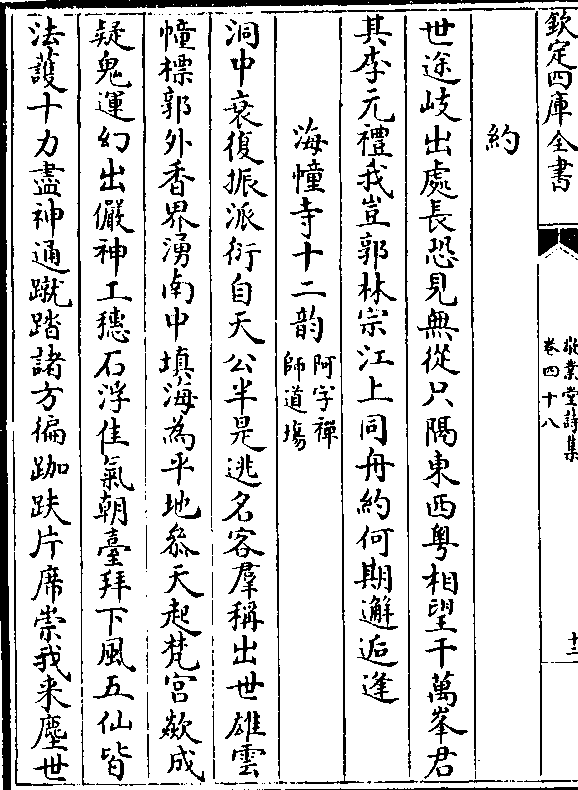 欽定四庫全書
敬業堂詩集
卷四十八
十三
約
世途岐出處長恐見無從只隅東西粵相望千萬峯君
其李元禮我豈郭林宗江上同舟約何期邂逅逢
海幢寺十二韵阿字禪師道塲
洞中衰復振派衍自天公半是逃名客羣稱出世雄雲
幢標郭外香界湧南中填海為平地叅天起梵宫欻成
疑鬼運幻出儼神工穗石浮佳氣朝臺拜下風五仙皆
法護十力盡神通蹴踏諸方徧跏趺片席崇我来塵世